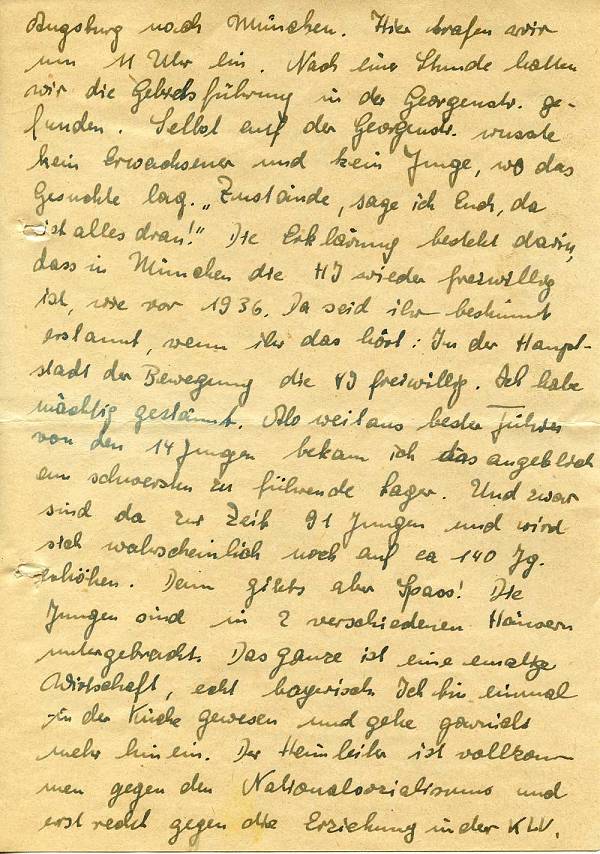 Augsburg nach München. Hier trafen wir
um 11 Uhr ein. Nach einer Stunde hatten
wir die Gebietsführung in der Georgenstr. ge-
funden. Selbst auf der Georgenstr. wusste
kein Erwachsener und kein Junge, wo das
Gesuchte lag. „Zustände, sage ich Euch, da
ist alles dran!" Die Erklärung besteht darin,
dass in München die HJ wieder freiwillig
ist, wie vor 1936. Da seid ihr bestimmt
erstaunt, wenn ihr das hört: In der Haupt-
stadt der Bewegung die HJ freiwillig. Ich habe
mächtig gestaunt. Als weitaus bester Führer
von den 14 Jungen bekam ich das angeblich
am schwersten zu führende Lager. Und zwar
sind da zur Zeit 91 Jungen und wird
sich wahrscheinlich noch auf ca 140 Jg.
erhöhen. Dann gibts aber Spass! Die
Jungen sind in 2 verschiedenen Häusern
untergebracht. Das ganze ist eine
Wirtschaft, echt bayerisch. Ich bin einmal
in der Küche gewesen und gehe garnicht
mehr hinein. Der Heimleiter ist vollkom-
men gegen den Nationalsozialismus und
erst recht gegen die Erziehung in der KLV.